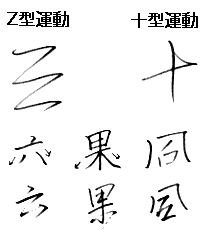 Z型運動 十型運動
十
六 果
六 果